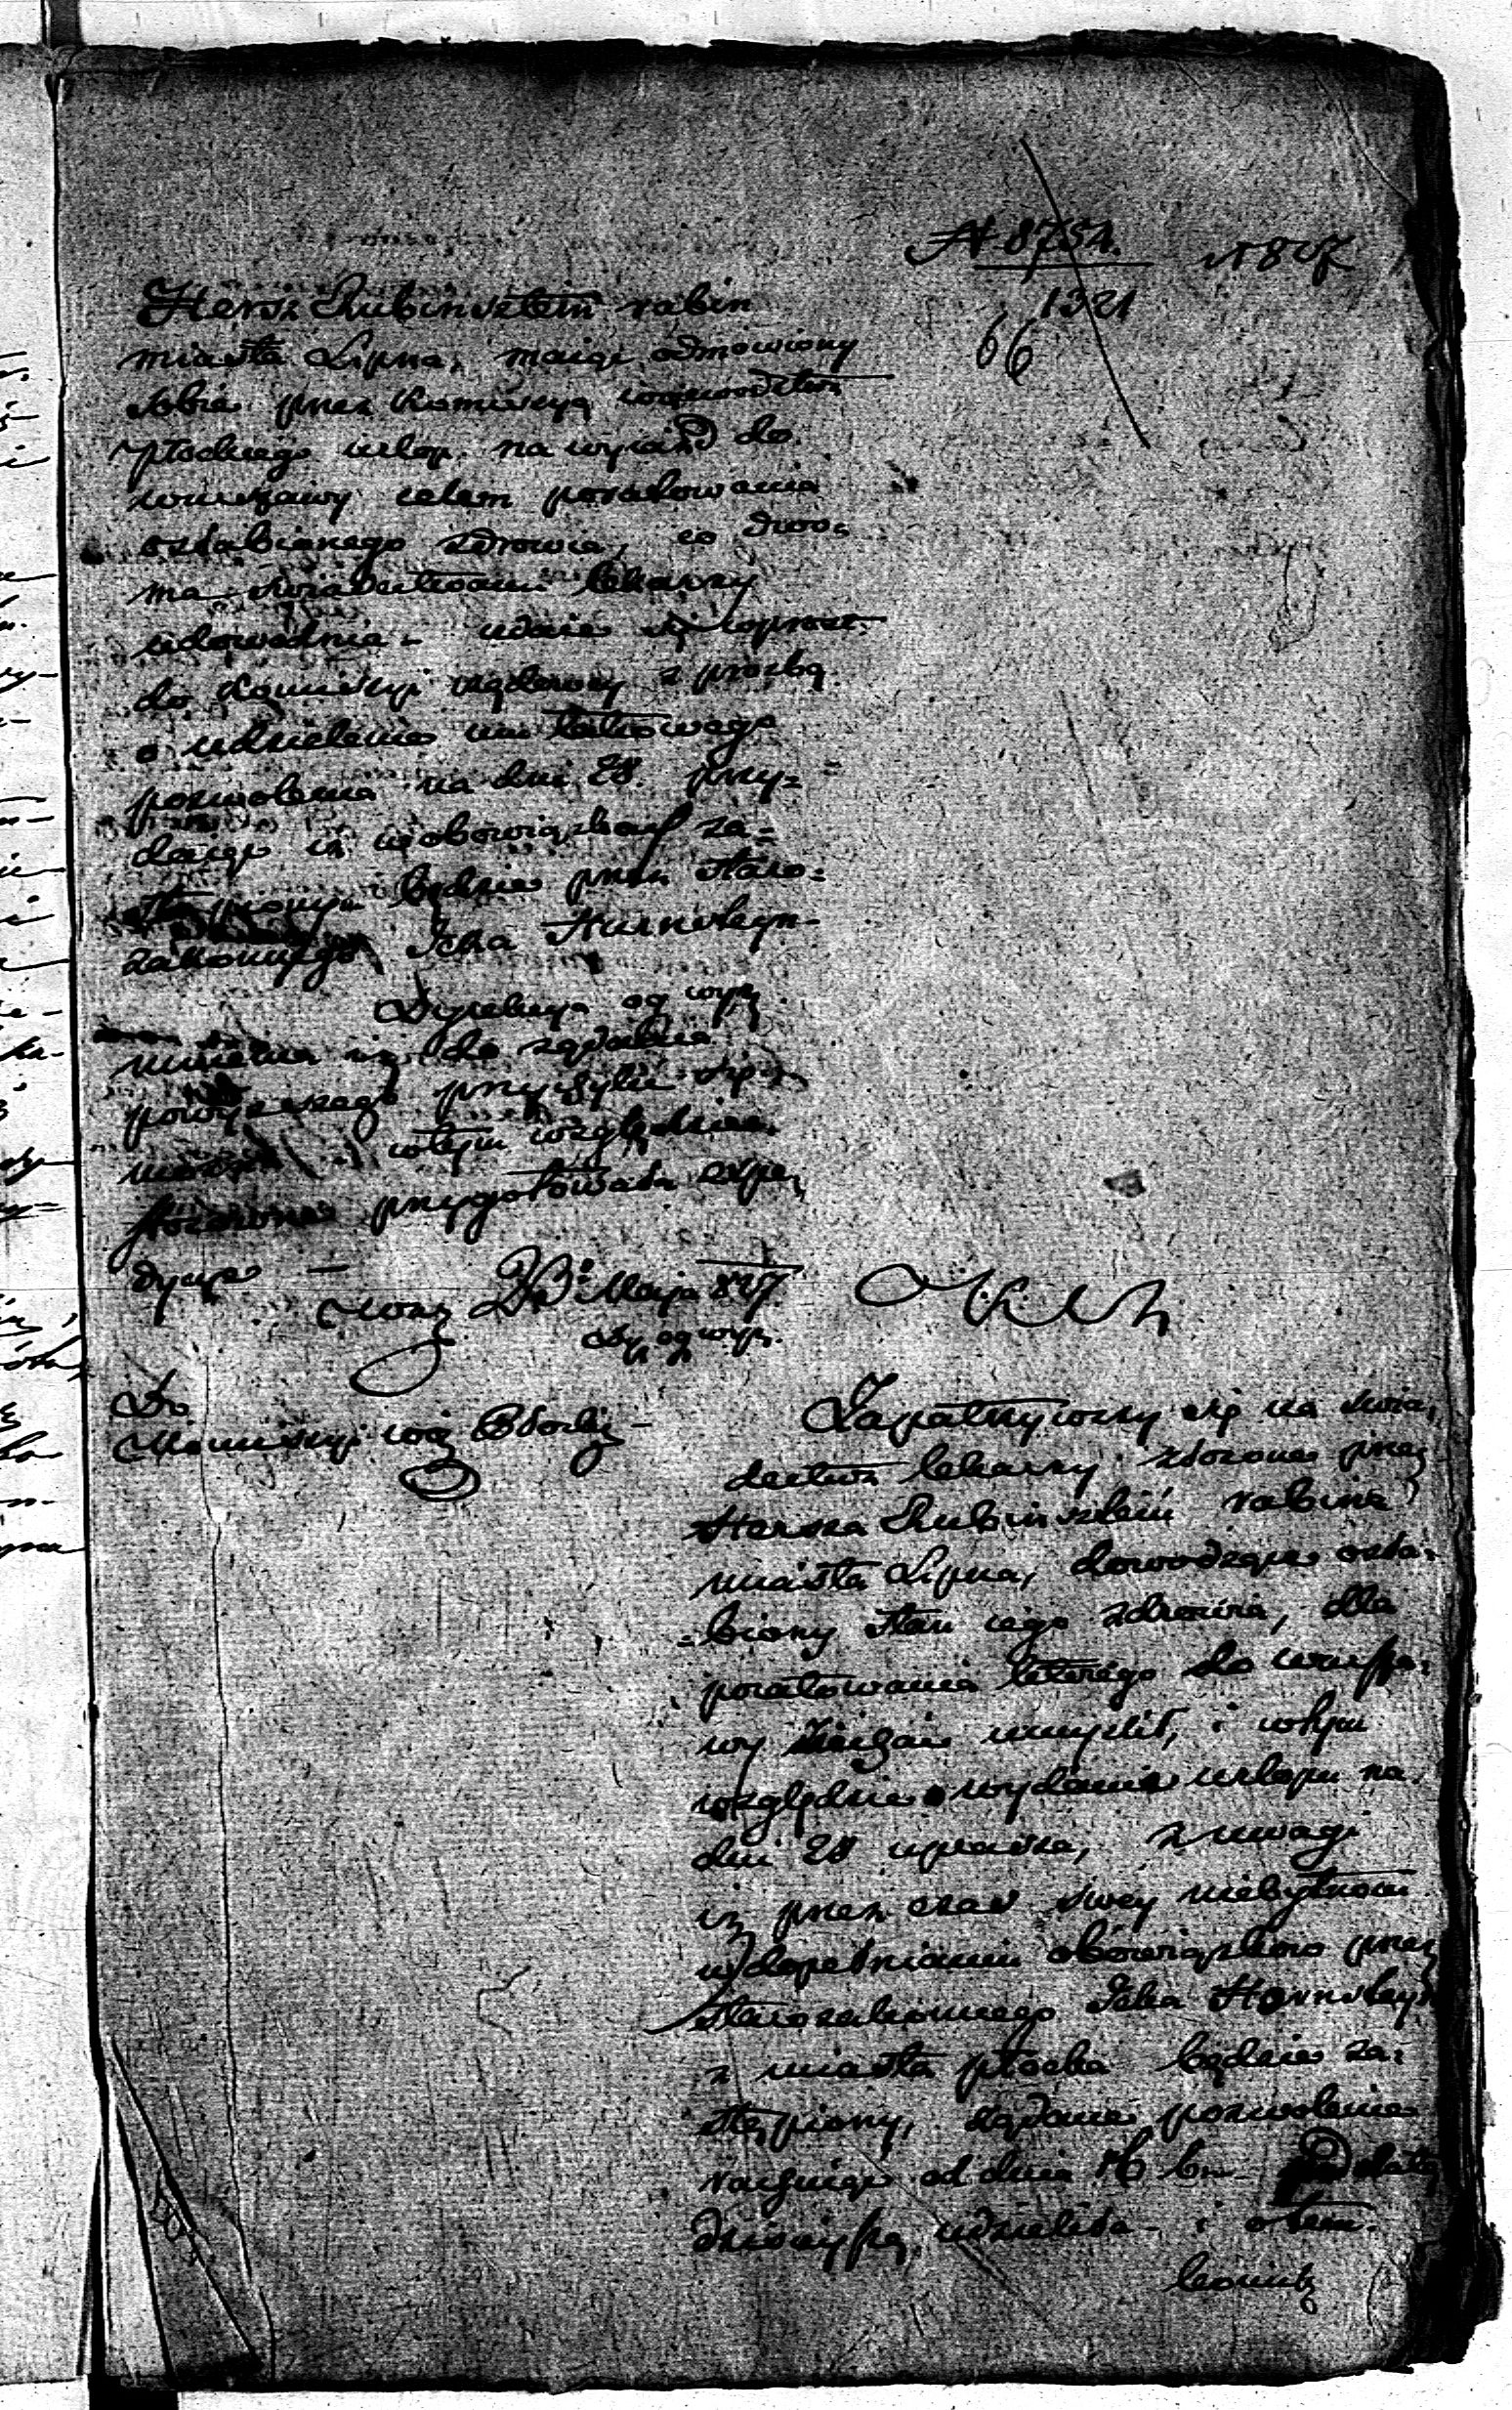 N 8754. 1827
1321
66
Hersz Rubinsztein rabin
miasta Lipna, maiąc odmowiony
sobie przez Kommissyą woiewodztwa
płockiego urlop na wyiazd do
warszawy celem poratowania
osłabionego zdrowia, co dwo=
ma swiadectwami lekarzy
udowadnia - udaie się wprost
do Kommissyi rządowey z prozbą
o udzielenie mu takowego
pozwolenia na dni 28. przy=
daiąc iż w obowiązkach za=
stąpionym będzie przez staro=
zakonnego Icka
Dyrekcya og wyz
mniema iż do żądania
powyzszego przychylić się
można i w tym względzie
stosowną przygotowała expe
dycyę —
Maja 827
Dy og wyz.
Do
Kommissyi woj Płockiey
Zapatrzywszy się na swia
dectwa lekarzy złozone przez
Herszka Rubinsztein rabina
miasta Lipna, dowodzące osła=
=biony stan iego zdrowia, dla
poratowania którego do warsza=
wy ziechać umyslił, i w tym
względzie o wydanie urlopu na
dni 28 uprasza, z uwagi
iż przez czas swey niebytności
w dopełnianiu obowiązków przez
starozakonnego Icka
z miasta płocka będzie za=
stępiony, żądane pozwolenie
rachuiąc od dnia 16 b.m.
udzieliła - i o tem